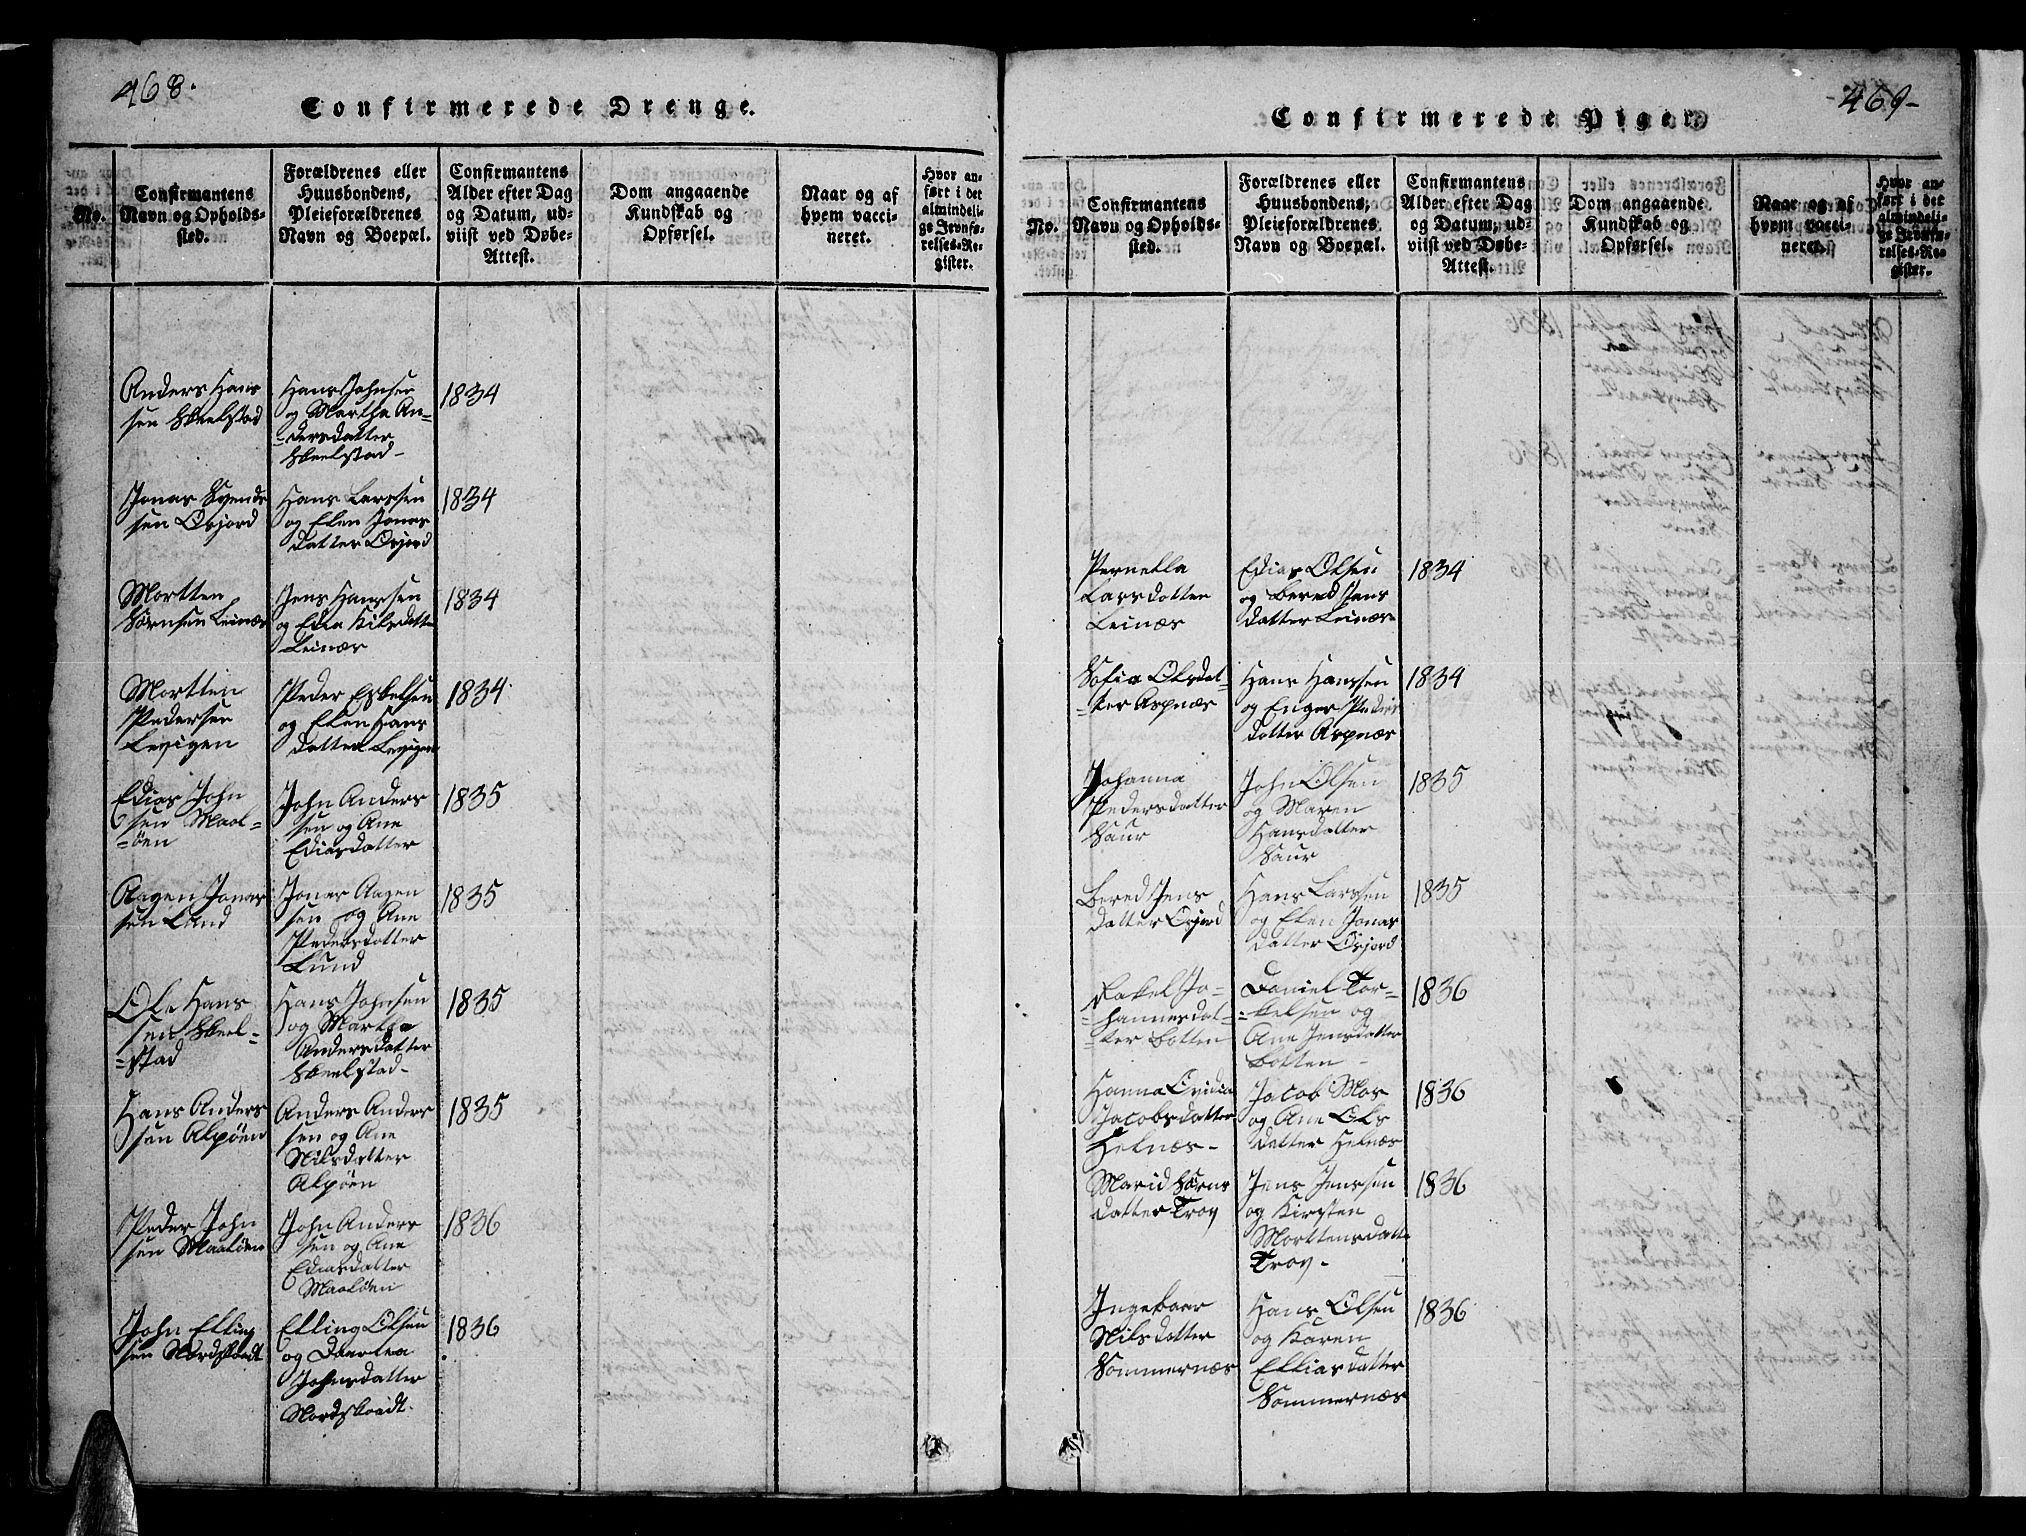 468.
Confirmerede Drenge.
No.
Confirmantens
Navn og Opholds-
sted.
Forældrenes eller
Huusbondens,
Pleieforældrenes
Navn og Boepæl.
Confirmantens
Alder efter Dag
og Datum, ud-
viist ved Døbe-
Attest.
Dom angaaende
Kundskab og
Opførsel.
Naar og af
hvem vacci-
neret.
Hvor an-
ført i det
almindeli-
ge Jevnfø-
relses-Re-
gister.
Anders Hans
sen Skeelstad
Hans Johnsen
og Martha An-
-dersdatter
Skeelstad-
1834
Jonas Svends
sen Osjord
Hans Larssen
og Elen Jonas
datter Osjord
1834
Mortten
Sørnsen Leinæs
Jens Hanssen
og Edia Nilsdatter
Leinæs
1834
Mortten
Pedersen
Levigen
Peder Esbelsen
og Elen Hans
datter Levigen
1834
Edias John
sen Maal-
-øen
John Anders
sen og Ane
Ediasdatter
1835
Aagen Jonas
sen Lund
Jonas Aagen
sen og Ane
Pedersdatter
Lund
1835
Ole Hans
sen Skeel-
-stad
Hans Johnsen
og Martha
Andersdatter
Skeelstad-
1835
Hans Anders
sen Alpøen
Anders Anders
sen og Ane
Nilsdatter
Alpøen
1835
Peder John
sen Maaløen
John Anders
sen og Ane
Ediasdatter
Maaløen
1836
John Elling
sen Nordskoadt
Elling Olsen
og Daartea
Johnsdatter
Nordskoadt.
1836
469-
Confirmerede Piger.
No.
Confirmantens
Navn og Opholds-
sted.
Forældrenes eller
Huusbondens,
Pleieforældrenes
Navn og Boepæl.
Confirmantens
Alder efter Dag
og Datum, ud-
viist ved Døbe-
Attest.
Dom angaaende
Kundskab og
Opførsel.
Naar og af
hvem vacci-
neret.
Hvor an-
ført i det
almindeli-
ge Jevnfø-
relses-Re-
gister.
Pernella
Larsdatter
Leinæs
Edias Olsen
og Bered Hans
datter Leinæs
1834
Sofia Olsdat-
-ter Aspnæs
Hans Hanssen
og Enger Peders
datter Aspnæs
1834
Johanna
Pedersdatter
Saur
John Olsen
og Maren
Hansdatter
Saur
1835
Bered Jens
datter Osjord
Hans Larssen
og Elen Jonas
datter Osjord
1835
Rakel Jo-
-hannesdat-
-ter Botten
Daniel Tor-
-kelsen og
Ane Jensdatter
Botten -
1836
Hanna Ovidia
Jacobsdatter
Helnæs-
Jacob Mos
og Ane Ols
datter Helnæs
1836
Marid Sørns
datter Trov
Jens Jenssen
og Kirsten
Morttensdatter
Trov-
1836
Ingebaar
Nilsdatter
Sommernæs
Hans Olsen
og Karen
Elliasdatter
Sommernæs
1836